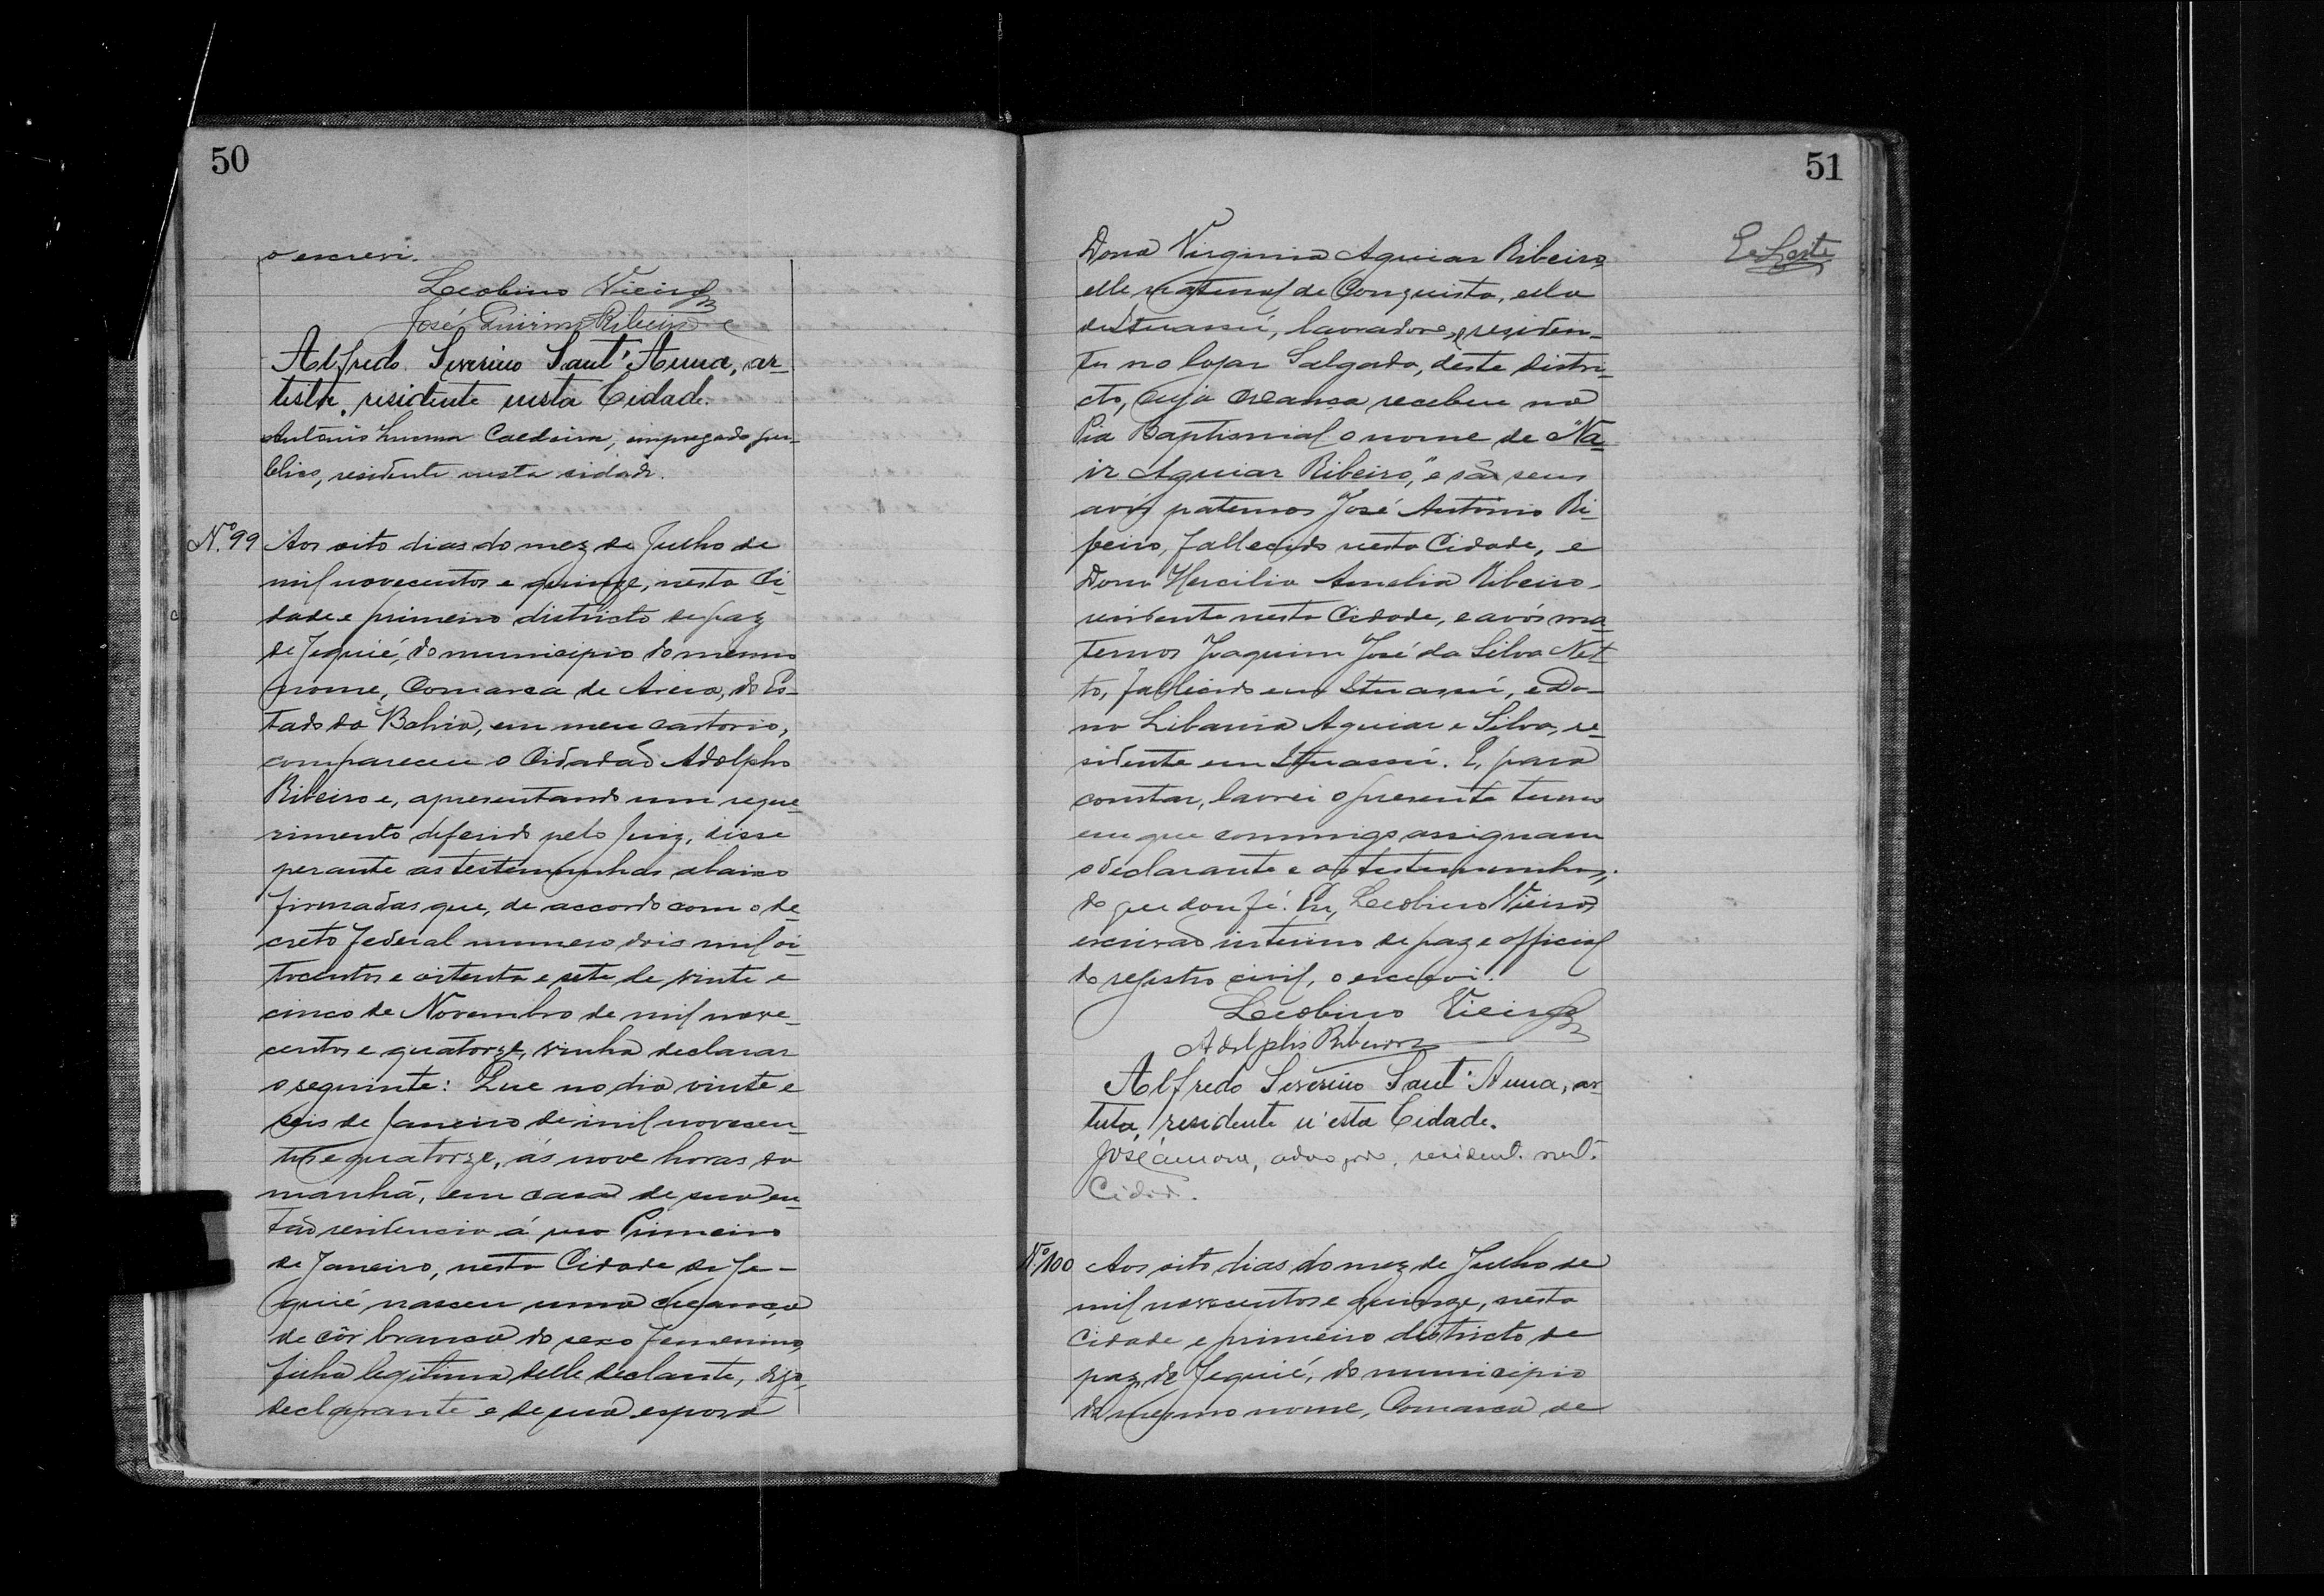 50
o escrevi.
Leobino Vieira
José Quirino Ribeiro
Alfredo Severino Sant'Anna, ar-
tista, residente nesta Cidade.
Antônio Caldeira, empregado pu-
blico, residente nesta cidade.
Nº 99 Aos oito dias do mez de Julho de
mil novecentos e quinze, nesta Ci-
dade e primeiro districto de paz
de Jequié, do municipio do mesmo
nome, Comarca de Areia, do Es-
tado da Bahia, em meu cartorio,
compareceu o Cidadão Adolpho
Ribeiro e, apresentando um reque-
rimento deferido pelo Juiz, disse
perante as testemunhas abaixo
firmadas que, de accordo com o de-
creto federal numero dois mil oi-
tocentos e oitenta e sete de vinte e
cinco de Novembro de mil nove-
centos e quatorze, vinha declarar
o seguinte: Que no dia vinte e
seis de Janeiro de mil novecen-
tos e quatorze, ás nove horas da
manhã, em casa de sua en-
tão residencia á rua Primeiro
de Janeiro, nesta Cidade de Je-
quié nasceu uma creança
de côr branca do sexo femenino,
filha legitima delle declante, digo,
declarante e de sua esposa
51
Dona Virginia Aguiar Ribeiro,
elle natural de Conquista, ella
de Ituassú, lavradores, residen-
tes no logar Salgado, deste distri-
cto, cuja creança recebeu na
Pia Baptismal o nome de "Na-
ir Aguiar Ribeiro," e são seus
avós paternos José Antonio Ri-
beiro, fallecido nesta Cidade, e
Dona Hercilia Amelia Ribeiro
residente nesta Cidade, e avós ma-
ternos Joaquim José da Silva Net-
to, fallecido em Ituassú, e Do-
na Libania Aguiar e Silva, re-
sidente em Ituassú. E, para
constar, lavrei o presente termo
em que commigo assignam
o declarante e as testemunhas;
do que dou fé. Eu, Leobino Vieira
escrivão interino de paz e official
do registro civil, o escrevi.
Leobino Vieira
Adolpho Ribeiro
Alfredo Severino Sant'Anna, ar-
tista, residente n'esta Cidade.
José, advogado, resident. nest.
Cidad.
Nº 100 Aos oito dias do mez de Julho de
mil novecentos e quinze, nesta
Cidade e primeiro districto de
paz de Jequié, do municipio
do mesmo nome, Comarca de